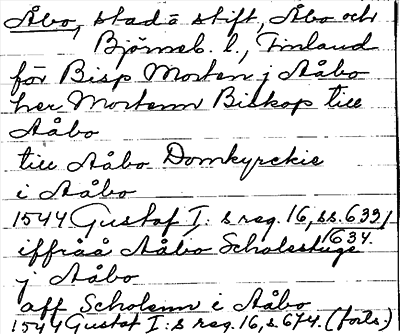 Åbo, stad o stift, Åbo och
Björneb. l., Finland
för Bisp Morten j Aåbo
her Mortenn Biskop till
Aåbo
till Aåbo Domkyrckie
i Aåbo
1544 Gustaf I:s reg. 16, ss. 633,
634.
iffråå Aåbo Scholestuge
j Aåbo
aff Scholenn i Aåbo
1544 Gustaf I:s reg. 16, s. 674. (forts.)